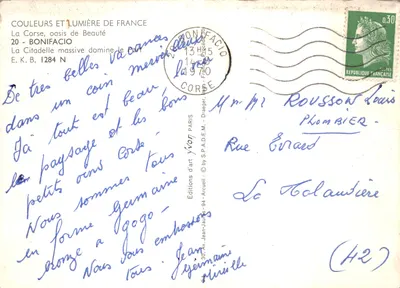 COULEURS ET LUMIÈRE DE FRANCE
La Corse, oasis de Beauté
20 - BONIFACIO
La Citadelle massive domine le
E.K.B. 1284 N
BONIFACIO
1970
CORSE
0,30
RÉPUBLIQUE FRANÇAISE
De très belles vacances
dans un coin merveilleux
Ici tout est beau, la mer
le paysage et les bons
petits vins Corse.
Nous sommes tous
en forme Germaine
bronze a gogo.
Nous vous embrassons
tous. Jean
Germaine
Mireille
Editions d'art yvon PARIS
S.P.A.D.E.M.
Mme Mr ROUSSON Louis
PLOMBIER
Rue Evrard
La
(42)